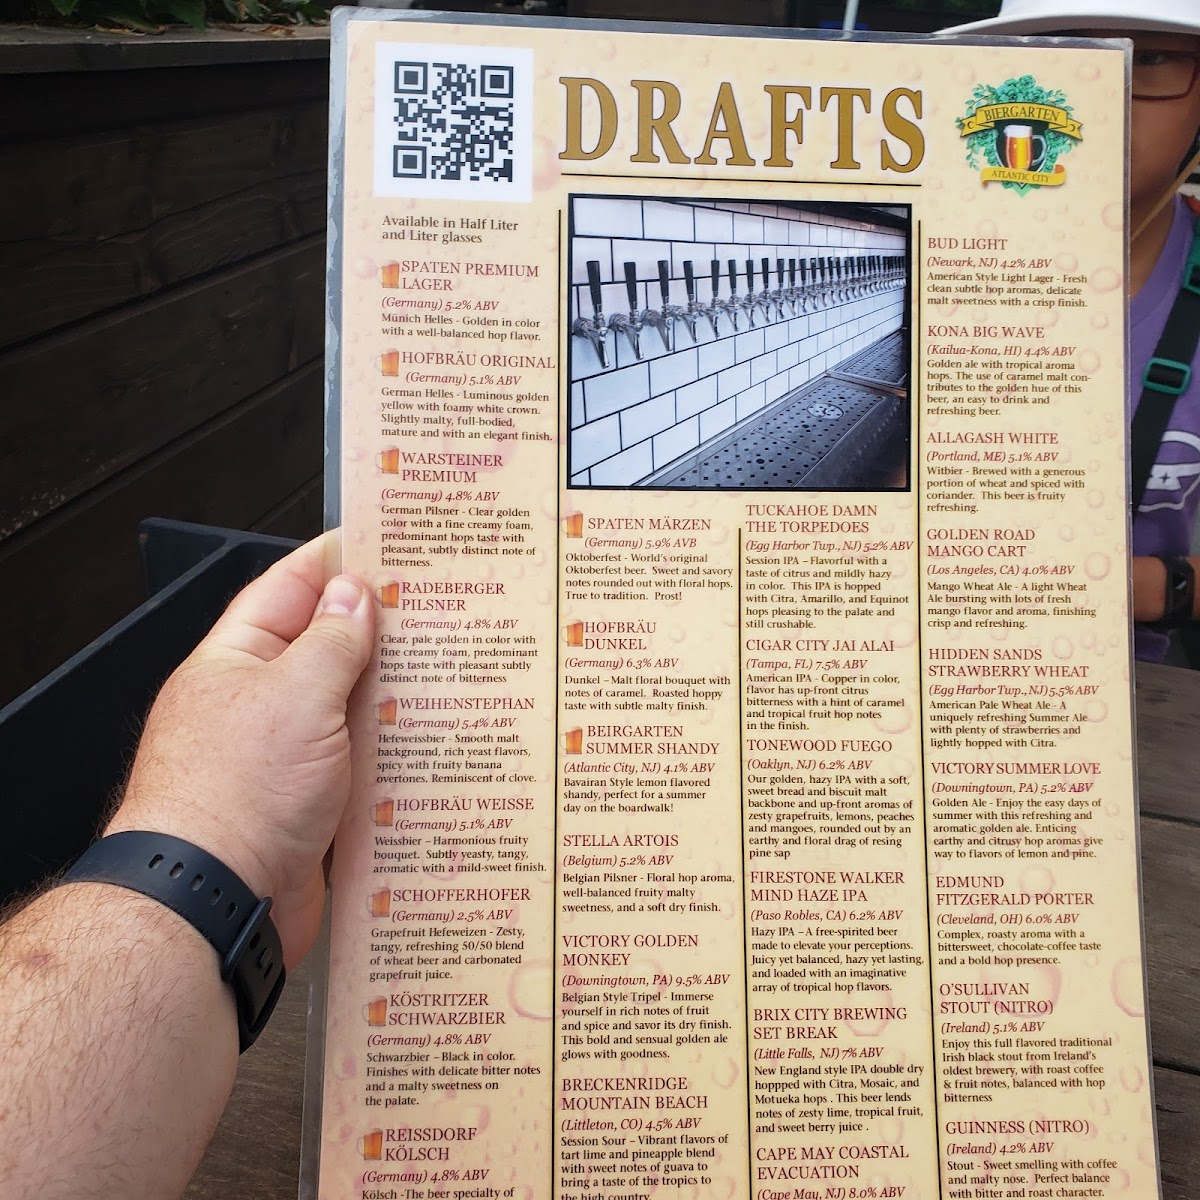 DRAFTS
BIERGARTEN
ATLANTIC CITY
Available in Half Liter
and Liter glasses
SPATEN PREMIUM
LAGER
(Germany) 5.2% ABV
Münich Helles - Golden in color
with a well-balanced hop flavor.
HOFBRÄU ORIGINAL
(Germany) 5.1% ABV
German Helles - Luminous golden
yellow with foamy white crown.
Slightly malty, full-bodied,
mature and with an elegant finish.
WARSTEINER
PREMIUM
(Germany) 4.8% ABV
German Pilsner - Clear golden
color with a fine creamy foam,
predominant hops taste with
pleasant, subtly distinct note of
bitterness.
RADEBERGER
PILSNER
(Germany) 4.8% ABV
Clear, pale golden in color with
fine creamy foam, predominant
hops taste with pleasant subtly
distinct note of bitterness
WEIHENSTEPHAN
(Germany) 5.4% ABV
Hefeweissbier - Smooth malt
background, rich yeast flavors,
spicy with fruity banana
overtones. Reminiscent of clove.
HOFBRÄU WEISSE
(Germany) 5.1% ABV
Weissbier – Harmonious fruity
bouquet. Subtly yeasty, tangy,
aromatic with a mild-sweet finish.
SCHOFFERHOFER
(Germany) 2.5% ABV
Grapefruit Hefeweizen - Zesty,
tangy, refreshing 50/50 blend
of wheat beer and carbonated
grapefruit juice.
KÖSTRITZER
SCHWARZBIER
(Germany) 4.8% ABV
Schwarzbier – Black in color.
Finishes with delicate bitter notes
and a malty sweetness on
the palate.
REISSDORF
KÖLSCH
(Germany) 4.8% ABV
Kölsch -The beer specialty of
SPATEN MÄRZEN
(Germany) 5.9% AVB
Oktoberfest - World's original
Oktoberfest beer. Sweet and savory
notes rounded out with floral hops.
True to tradition. Prost!
HOFBRÄU
DUNKEL
(Germany) 6.3% ABV
Dunkel – Malt floral bouquet with
notes of caramel. Roasted hoppy
taste with subtle malty finish.
BEIRGARTEN
SUMMER SHANDY
(Atlantic City, NJ) 4.1% ABV
Bavairan Style lemon flavored
shandy, perfect for a summer
day on the boardwalk!
STELLA ARTOIS
(Belgium) 5.2% ABV
Belgian Pilsner - Floral hop aroma,
well-balanced fruity malty
sweetness, and a soft dry finish.
VICTORY GOLDEN
MONKEY
(Downingtown, PA) 9.5% ABV
Belgian Style Tripel - Immerse
yourself in rich notes of fruit
and spice and savor its dry finish.
This bold and sensual golden ale
glows with goodness.
BRECKENRIDGE
MOUNTAIN BEACH
(Littleton, CO) 4.5% ABV
Session Sour – Vibrant flavors of
tart lime and pineapple blend
with sweet notes of guava to
bring a taste of the tropics to
the high country.
TUCKAHOE DAMN
THE TORPEDOES
(Egg Harbor Twp., NJ) 5.2% ABV
Session IPA – Flavorful with a
taste of citrus and mildly hazy
in color. This IPA is hopped
with Citra, Amarillo, and Equinot
hops pleasing to the palate and
still crushable.
CIGAR CITY JAI ALAI
(Tampa, FL) 7.5% ABV
American IPA - Copper in color,
flavor has up-front citrus
bitterness with a hint of caramel
and tropical fruit hop notes
in the finish.
TONEWOOD FUEGO
(Oaklyn, NJ) 6.2% ABV
Our golden, hazy IPA with a soft,
sweet bread and biscuit malt
backbone and up-front aromas of
zesty grapefruits, lemons, peaches
and mangoes, rounded out by an
earthy and floral drag of resing
pine sap
FIRESTONE WALKER
MIND HAZE IPA
(Paso Robles, CA) 6.2% ABV
Hazy IPA – A free-spirited beer
made to elevate your perceptions.
Juicy yet balanced, hazy yet lasting,
and loaded with an imaginative
array of tropical hop flavors.
BRIX CITY BREWING
SET BREAK
(Little Falls, NJ) 7% ABV
New England style IPA double dry
hoppped with Citra, Mosaic, and
Motueka hops . This beer lends
notes of zesty lime, tropical fruit,
and sweet berry juice .
CAPE MAY COASTAL
EVACUATION
(Cape May, NJ) 8.0% ABV
BUD LIGHT
(Newark, NJ) 4.2% ABV
American Style Light Lager - Fresh
clean subtle hop aromas, delicate
malt sweetness with a crisp finish.
KONA BIG WAVE
(Kailua-Kona, HI) 4.4% ABV
Golden ale with tropical aroma
hops. The use of caramel malt con-
tributes to the golden hue of this
beer, an easy to drink and
refreshing beer.
ALLAGASH WHITE
(Portland, ME) 5.1% ABV
Witbier - Brewed with a generous
portion of wheat and spiced with
coriander. This beer is fruity
refreshing.
GOLDEN ROAD
MANGO CART
(Los Angeles, CA) 4.0% ABV
Mango Wheat Ale - A light Wheat
Ale bursting with lots of fresh
mango flavor and aroma, finishing
crisp and refreshing.
HIDDEN SANDS
STRAWBERRY WHEAT
(Egg Harbor Twp., NJ) 5.5% ABV
American Pale Wheat Ale - A
uniquely refreshing Summer Ale
with plenty of strawberries and
lightly hopped with Citra.
VICTORY SUMMER LOVE
(Downingtown, PA) 5.2% ABV
Golden Ale - Enjoy the easy days of
summer with this refreshing and
aromatic golden ale. Enticing
earthy and citrusy hop aromas give
way to flavors of lemon and pine.
EDMUND
FITZGERALD PORTER
(Cleveland, OH) 6.0% ABV
Complex, roasty aroma with a
bittersweet, chocolate-coffee taste
and a bold hop presence.
O'SULLIVAN
STOUT (NITRO)
(Ireland) 5.1% ABV
Enjoy this full flavored traditional
Irish black stout from Ireland's
oldest brewery, with roast coffee
& fruit notes, balanced with hop
bitterness
GUINNESS (NITRO)
(Ireland) 4.2% ABV
Stout - Sweet smelling with coffee
and malty nose. Perfect balance
with bitter and roast character.